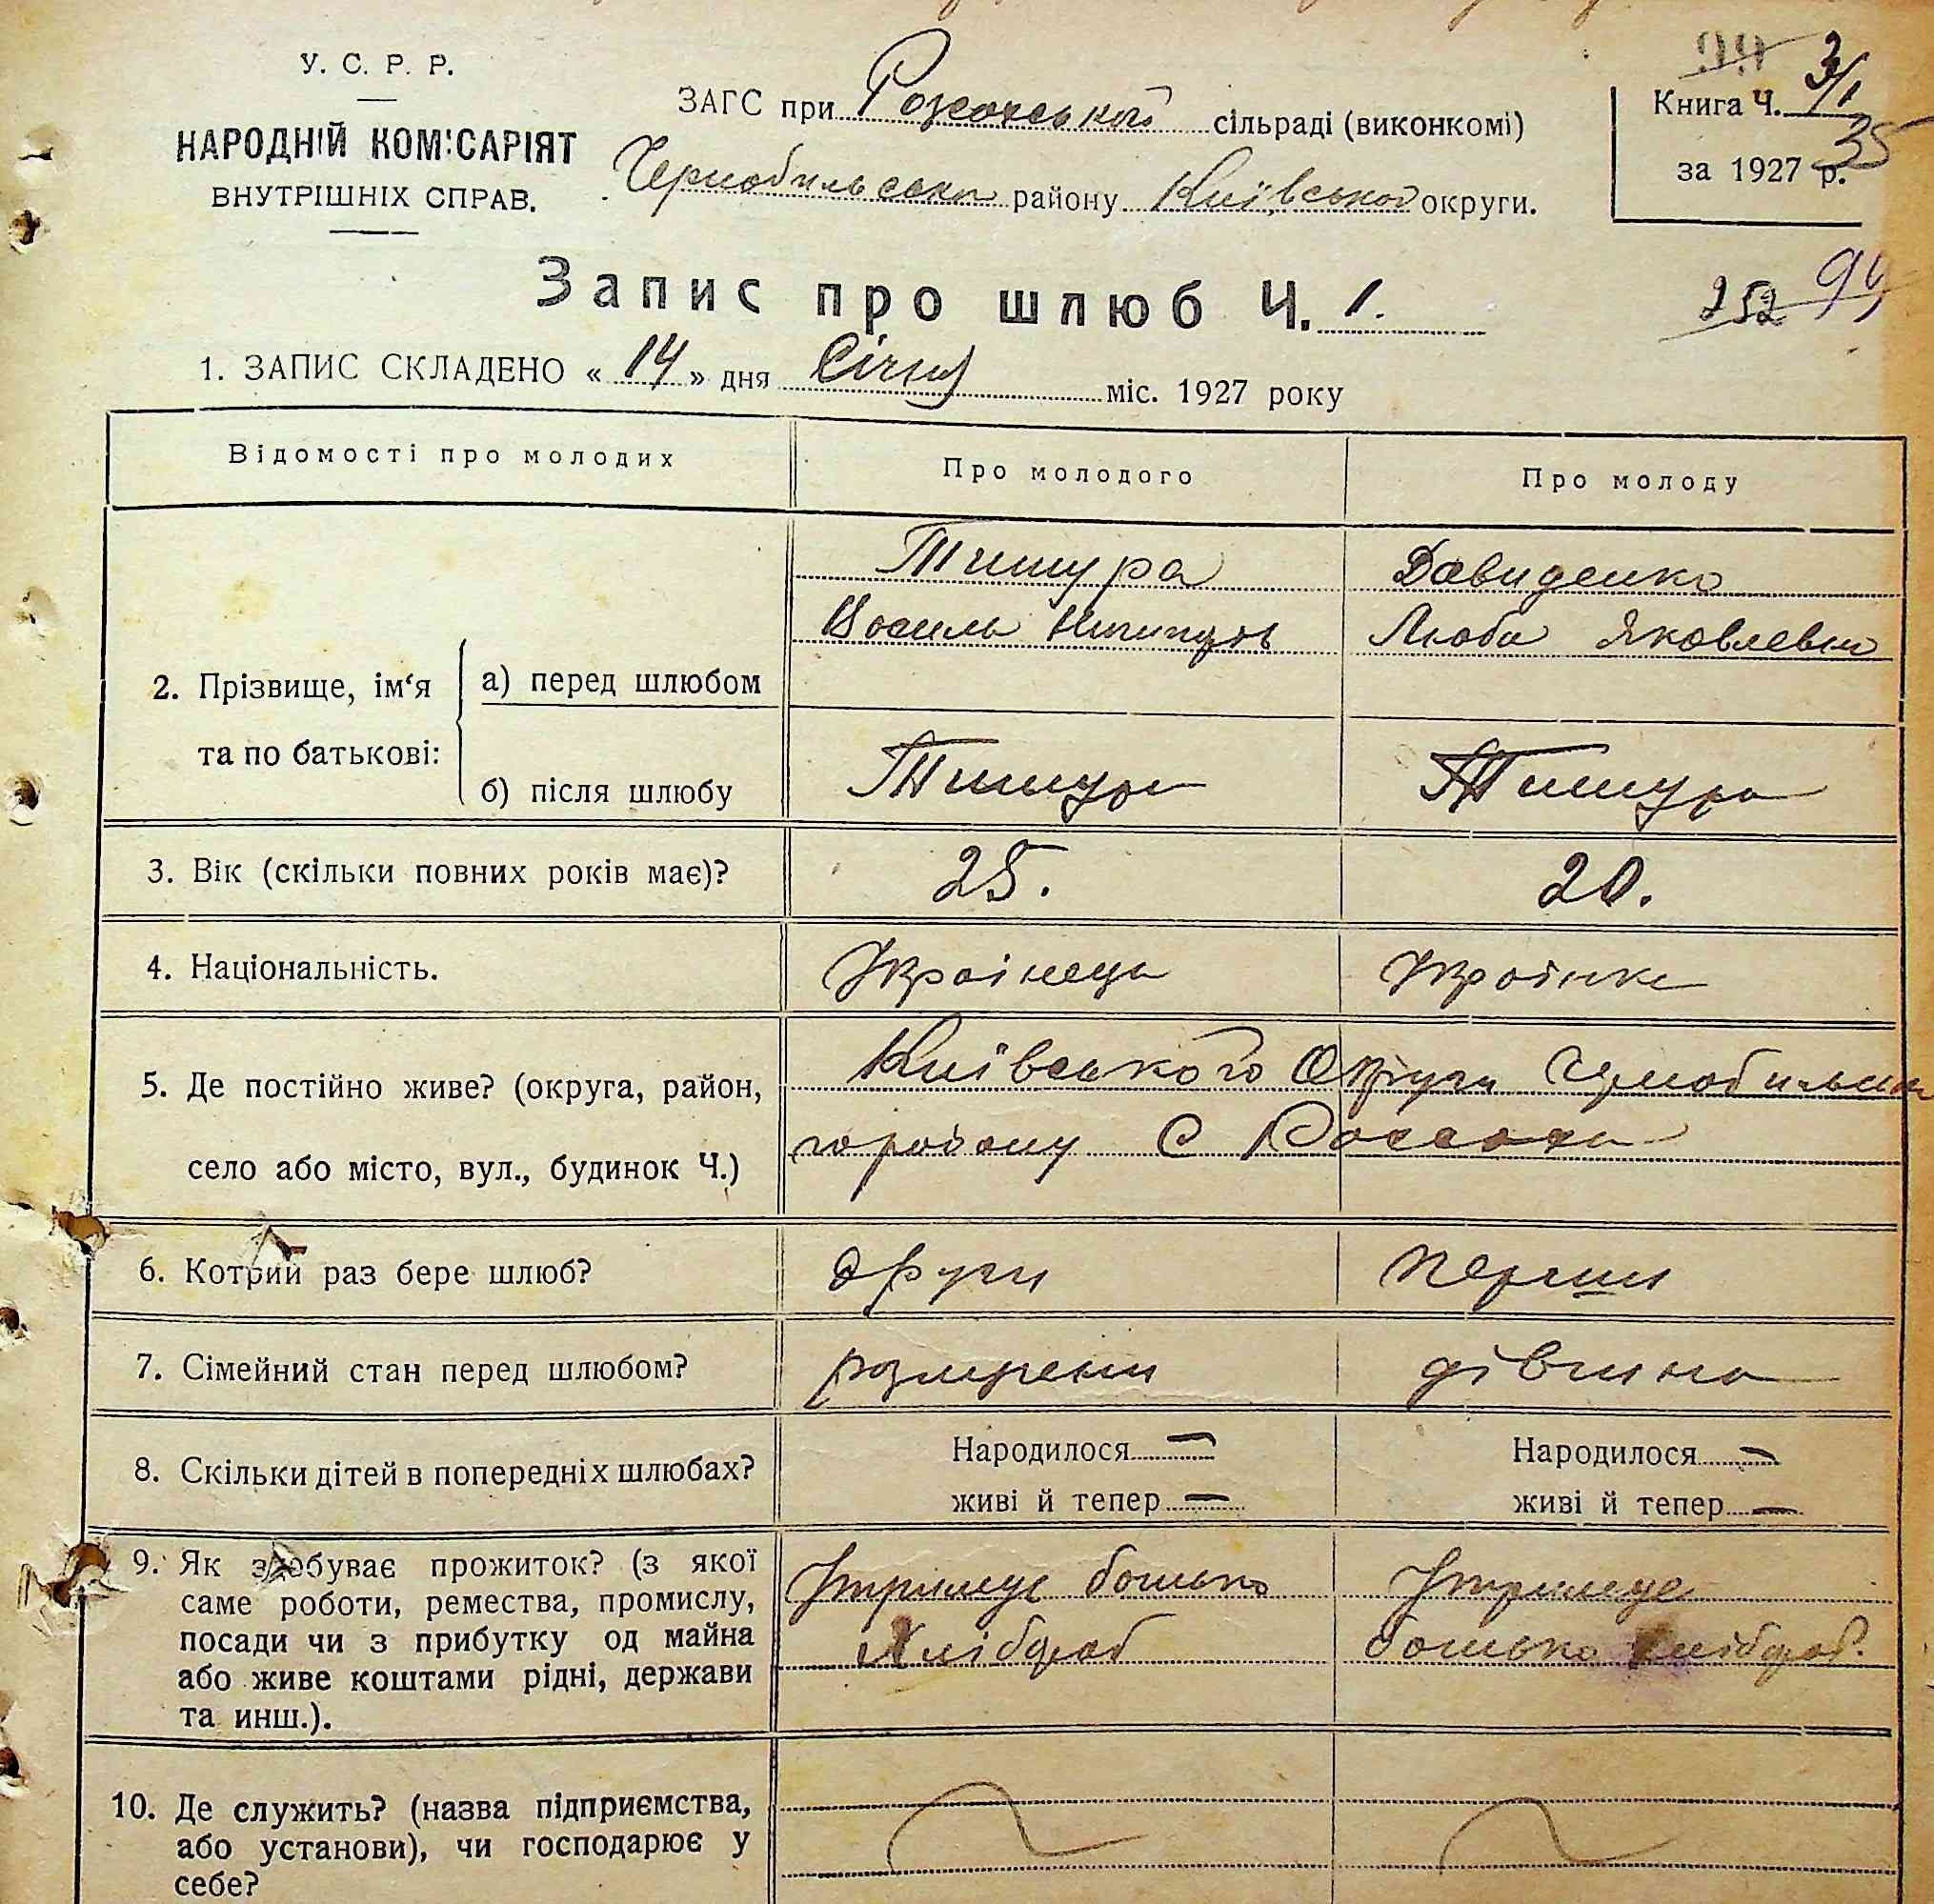 У. С. Р. Р.
НАРОДНІЙ КОМІСАРІЯТ
ВНУТРІШНІХ СПРАВ.
ЗАГС при сільраді (виконкомі)
району Київської округи.
Книга Ч. 3/1
за 1927 р. 35
252 99
Запис про шлюб Ч. 1.
1. ЗАПИС СКЛАДЕНО « 14 » дня Січня міс. 1927 року
Відомості про молодих
Про молодого
Про молоду
2. Прізвище, ім‘я та по батькові:
а) перед шлюбом
Тишура
Василь
Давиденко
Люба Яковлевна
б) після шлюбу
Тишура
Тишура
3. Вік (скільки повних років має)?
25.
20.
4. Національність.
Украінець
Украінка
5. Де постійно живе? (округа, район,
село або місто, вул., будинок Ч.)
Київського Округи
району С
6. Котрий раз бере шлюб?
други
перши
7. Сімейний стан перед шлюбом?
дівчина
8. Скільки дітей в попередніх шлюбах?
Народилося —
живі й тепер —
Народилося —
живі й тепер —
9. Як здобуває прожиток? (з якої
саме роботи, ремества, промислу,
посади чи з прибутку од майна
або живе коштами рідні, держави
та инш.).
Утримує батько
Хлібороб
Утримує
батько хлібороб.
10. Де служить? (назва підприємства,
або установи), чи господарює у
себе?